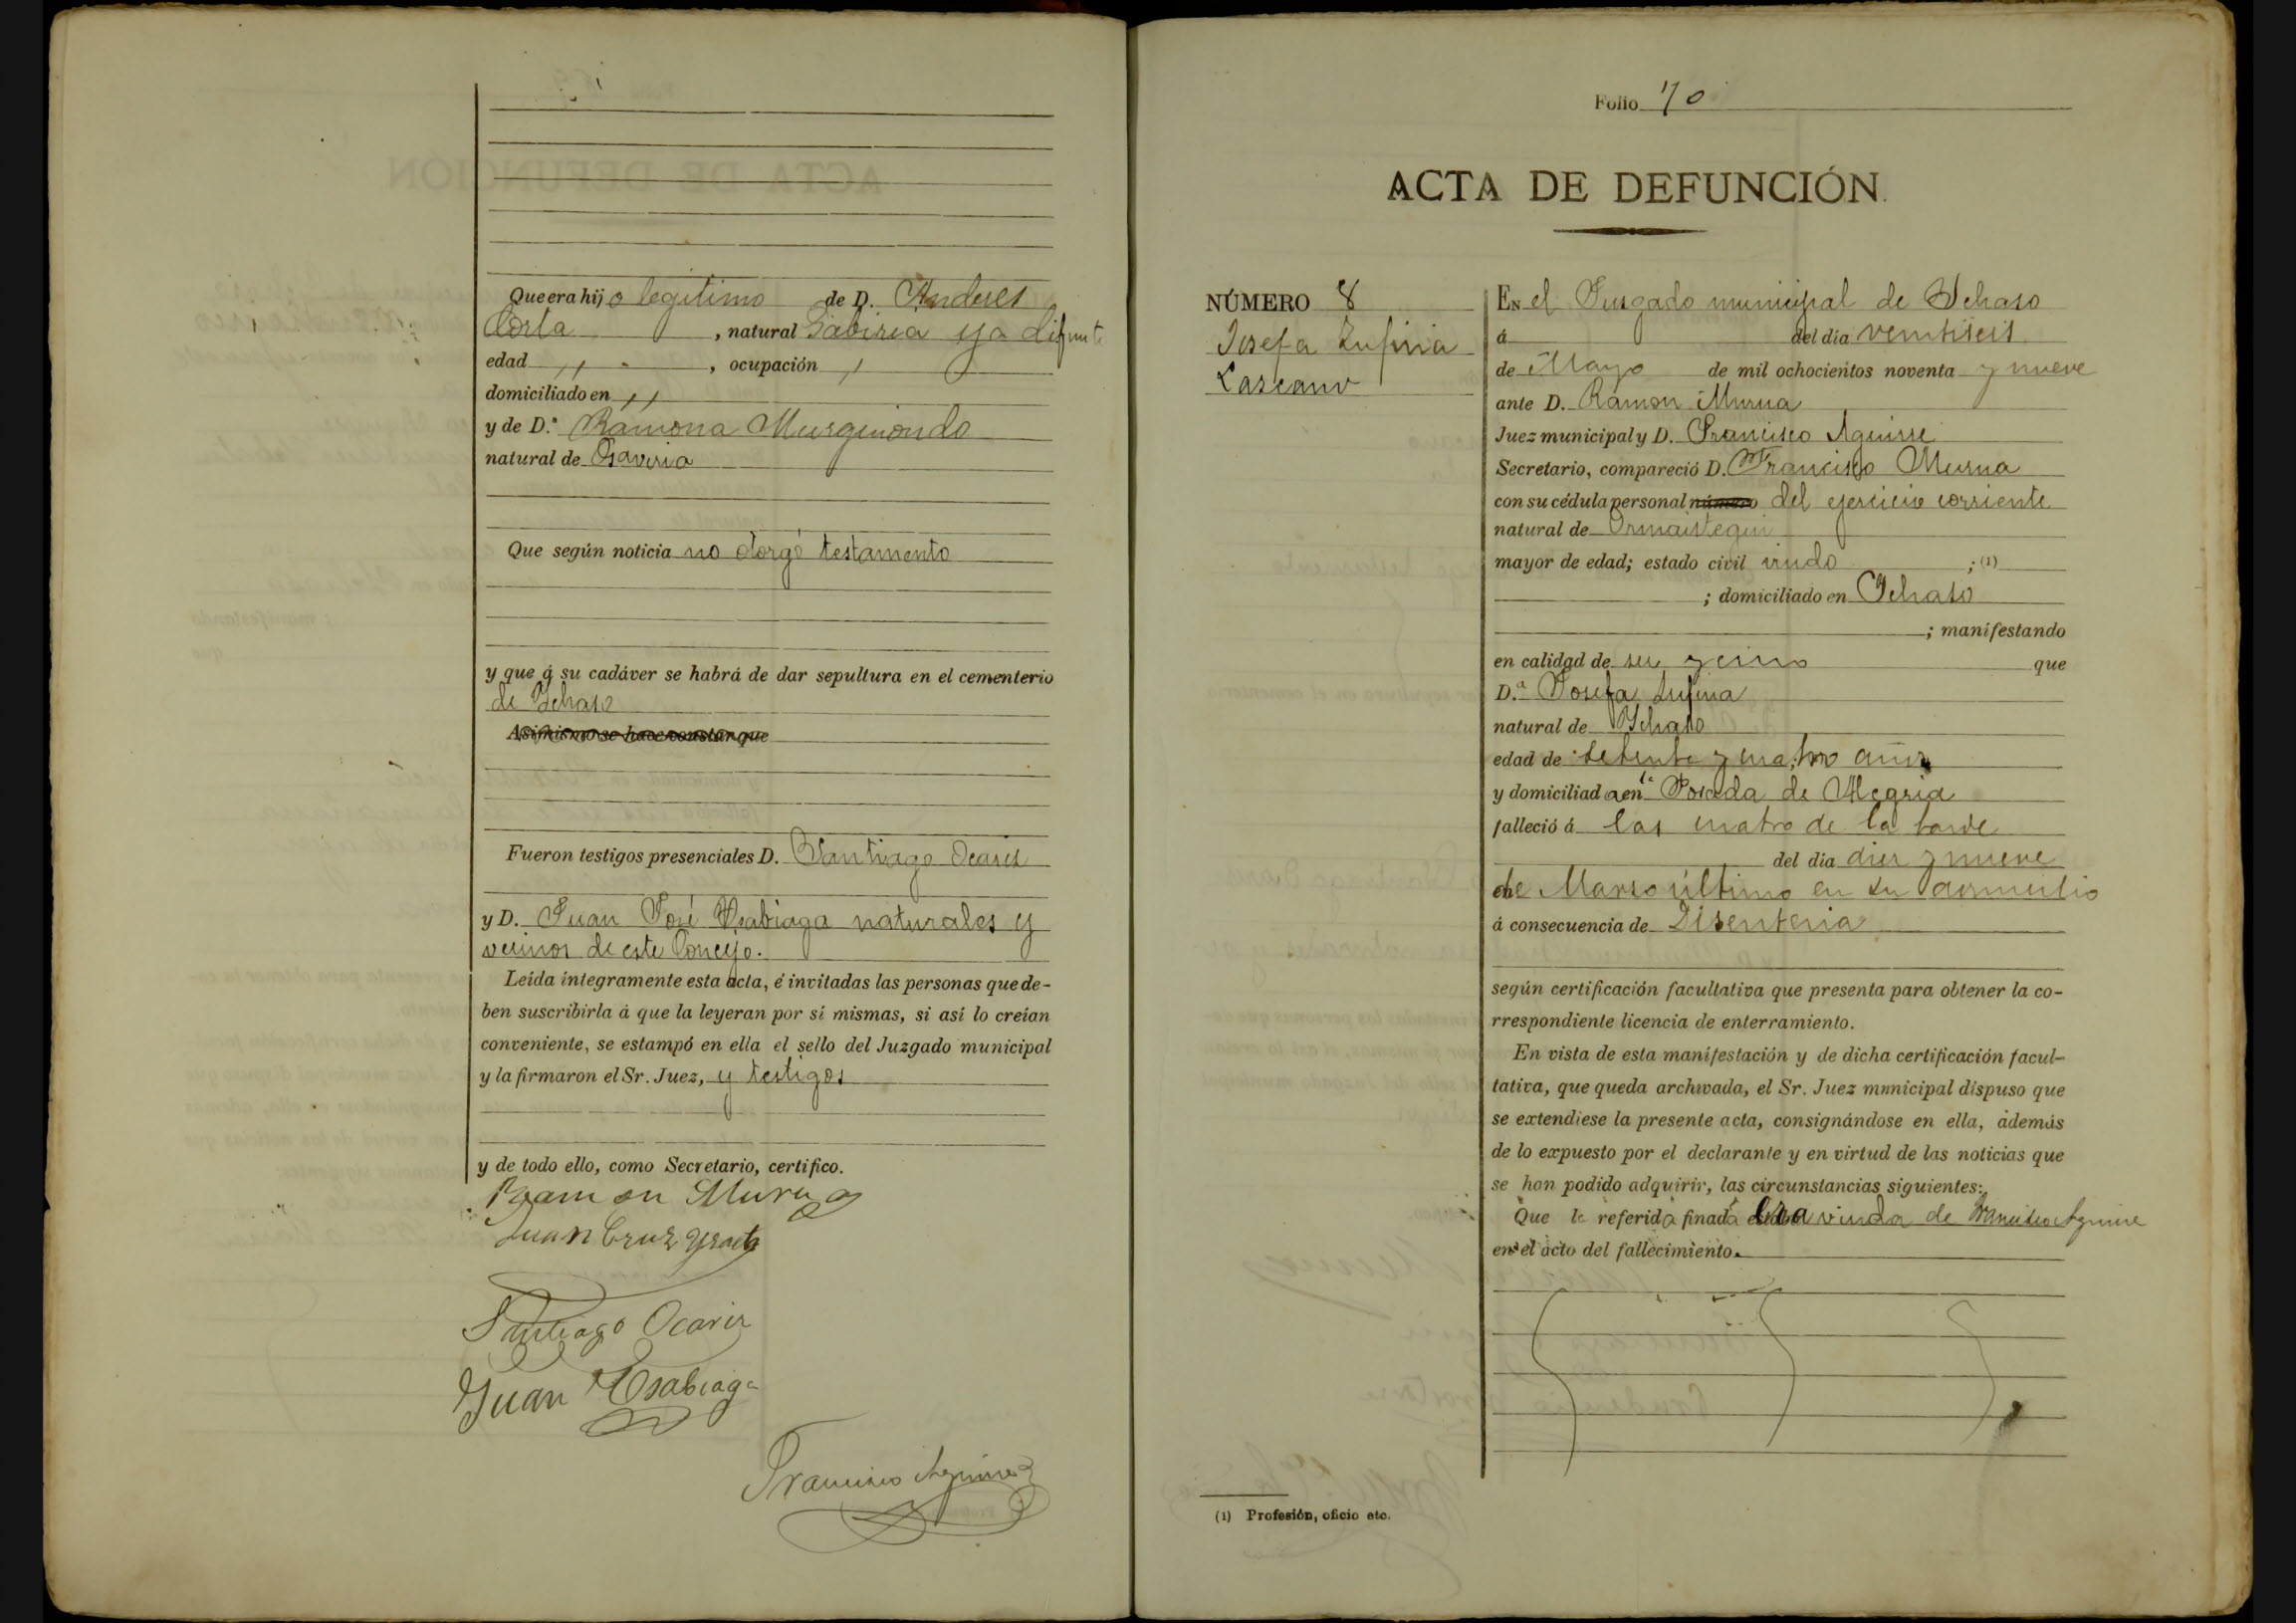 Que era hijo legitimo de D. Anderes
Corta, natural Gabiria ya difunt
edad ,, , ocupación ,,
domiciliado en ,,
y de D.ª Ramona Murguiondo
natural de Gaviria
Que según noticia no otorgó testamento
y que á su cadáver se habrá de dar sepultura en el cementerio
de Ychaso
Asimismo se hace constar que
Fueron testigos presenciales D. Santiago Ocariz
y D. Juan José Ysabiaga naturales y
vecinos de este Concejo.
Leída íntegramente esta acta, é invitadas las personas que de-
ben suscribirla á que la leyeran por sí mismas, si así lo creían
conveniente, se estampó en ella el sello del Juzgado municipal
y la firmaron el Sr. Juez, y testigos
y de todo ello, como Secretario, certifico.
Ramon Murua
Juan Cruz
Santiago Ocariz
Juan Ysabiaga
Francisco Aguirre
Folio 70
ACTA DE DEFUNCIÓN.
NÚMERO 8
Josefa Lufina
Lascano
En el Jusgado municipal de Ychaso
á del día ventiseis
de Mayo de mil ochocientos noventa y nueve
ante D. Ramon Murua
Juez municipal y D. Francisco Aguirre
Secretario, compareció D. Francisco Murua
con su cédula personal número del ejercicio corriente
natural de Ormaistegui
mayor de edad; estado civil viudo ; (1)
; domiciliado en Ychaso
; manifestando
en calidad de su yerno que
D.ª Josefa Lufina
natural de Ychaso
edad de setenta y cuatro años
y domiciliada en la Posada de Alegria
falleció á las cuatro de la tarde
del día diez y nueve
de Marso último en su domicilio
á consecuencia de Disenteria
según certificación facultativa que presenta para obtener la co-
rrespondiente licencia de enterramiento.
En vista de esta manifestación y de dicha certificación facul-
tativa, que queda archivada, el Sr. Juez municipal dispuso que
se extendiese la presente acta, consignándose en ella, además
de lo expuesto por el declarante y en virtud de las noticias que
se han podido adquirir, las circunstancias siguientes:
Que la referida finada era viuda de Francisco Aguirre
en el acto del fallecimiento.
(1) Profesión, oficio etc.